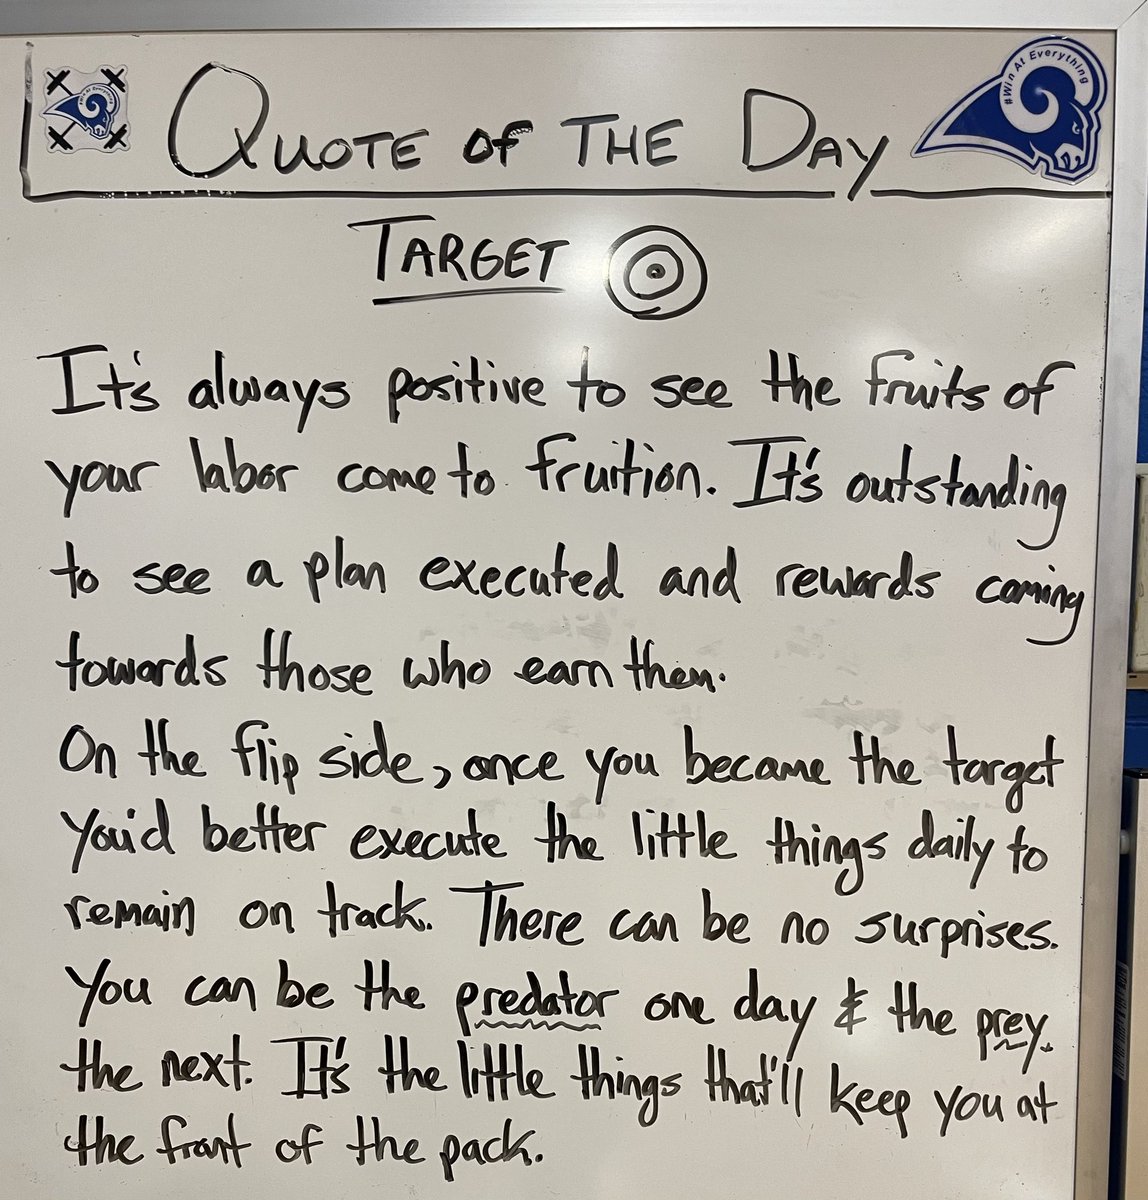 #Win At Everything
QUOTE of THE DAY
#Win At Everything
TARGET
It's always positive to see the fruits of
your labor come to fruition. It's outstanding
to see a plan executed and rewards coming
towards those who earn them.
On the flip side, once you became the target
You'd better execute the little things daily to
remain on track. There can be no surprises.
You can be the predator one day & the prey
the next. It's the little things that'll keep you at
the front of the pack.